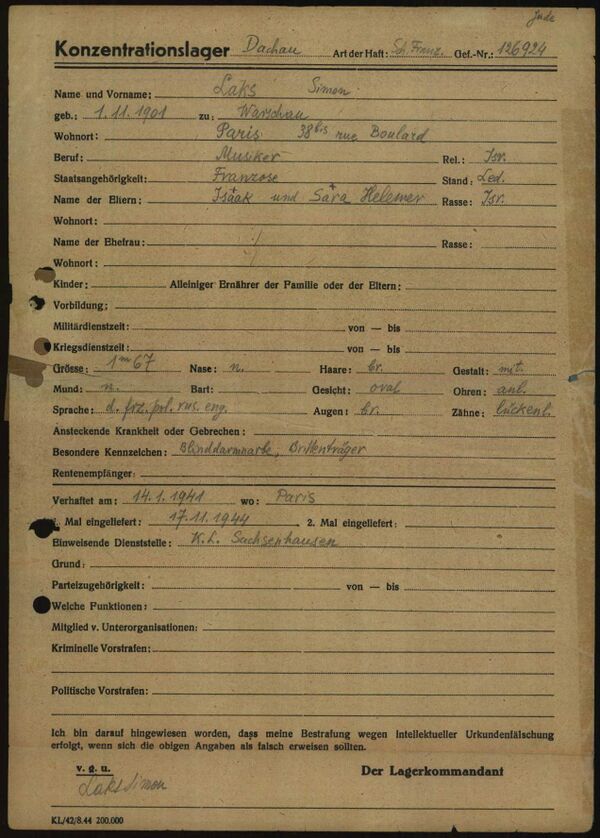 Jude
Konzentrationslager Dachau Art der Haft: Sch. Franz. Gef.-Nr.: 126924
Name und Vorname: Laks Simon
geb.: 1.11.1901 zu: Warschau
Wohnort: Paris 38bis rue Boulard
Beruf: Musiker Rel.: Isr.
Staatsangehörigkeit: Franzose Stand: Led.
Name der Eltern: Isaak und Sara Helemer Rasse: Isr.
Wohnort:
Name der Ehefrau: Rasse:
Wohnort:
Kinder: Alleiniger Ernährer der Familie oder der Eltern:
Vorbildung:
Militärdienstzeit: von — bis
Kriegsdienstzeit: von — bis
Grösse: 1m67 Nase: n. Haare: br. Gestalt: mit.
Mund: n. Bart: Gesicht: oval Ohren: anl.
Sprache: d. frz. pol. rus. eng. Augen: br. Zähne: lückenl.
Ansteckende Krankheit oder Gebrechen:
Besondere Kennzeichen: Blinddarmnarbe, Brillenträger
Rentenempfänger:
Verhaftet am: 14.1.1941 wo: Paris
Mal eingeliefert: 17.11.1944 2. Mal eingeliefert:
Einweisende Dienststelle: K.L. Sachsenhausen
Grund:
Parteizugehörigkeit: von — bis
Welche Funktionen:
Mitglied v. Unterorganisationen:
Kriminelle Vorstrafen:
Politische Vorstrafen:
Ich bin darauf hingewiesen worden, dass meine Bestrafung wegen intellektueller Urkundenfälschung
erfolgt, wenn sich die obigen Angaben als falsch erweisen sollten.
v. g. u. Der Lagerkommandant
Laks Simon
KL/42/8.44 200.000